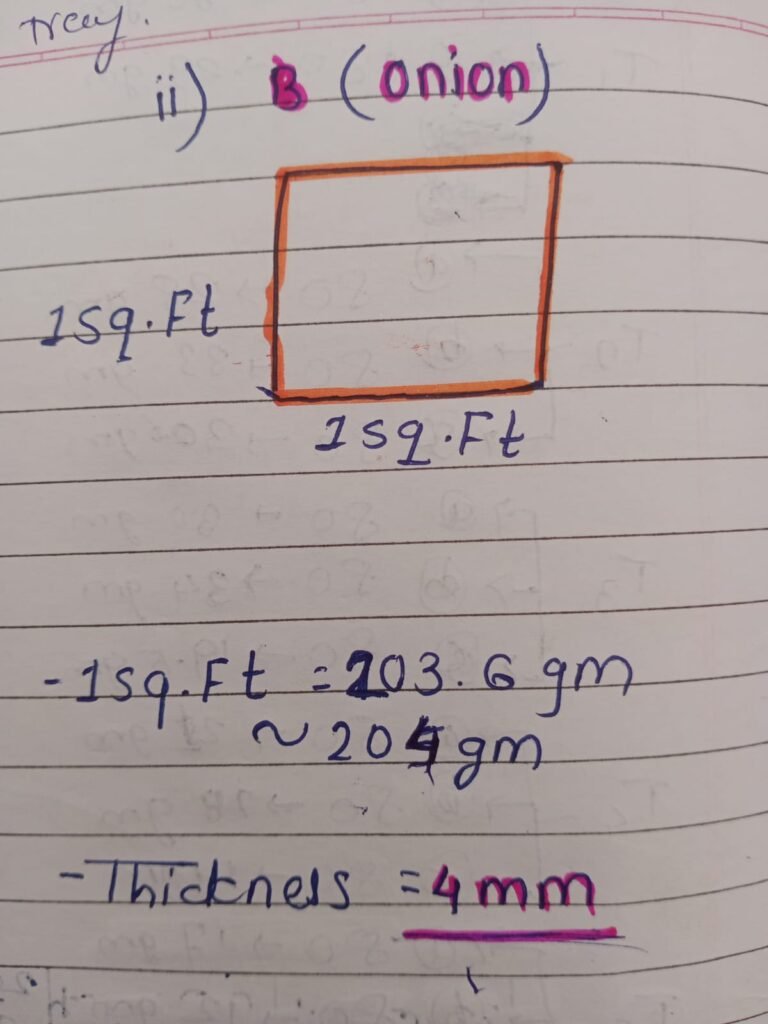 tray.
ii) B (onion)
1sq.Ft
1sq.Ft
-1sq.Ft =203.6 gm
~ 204gm
-Thickness =4mm